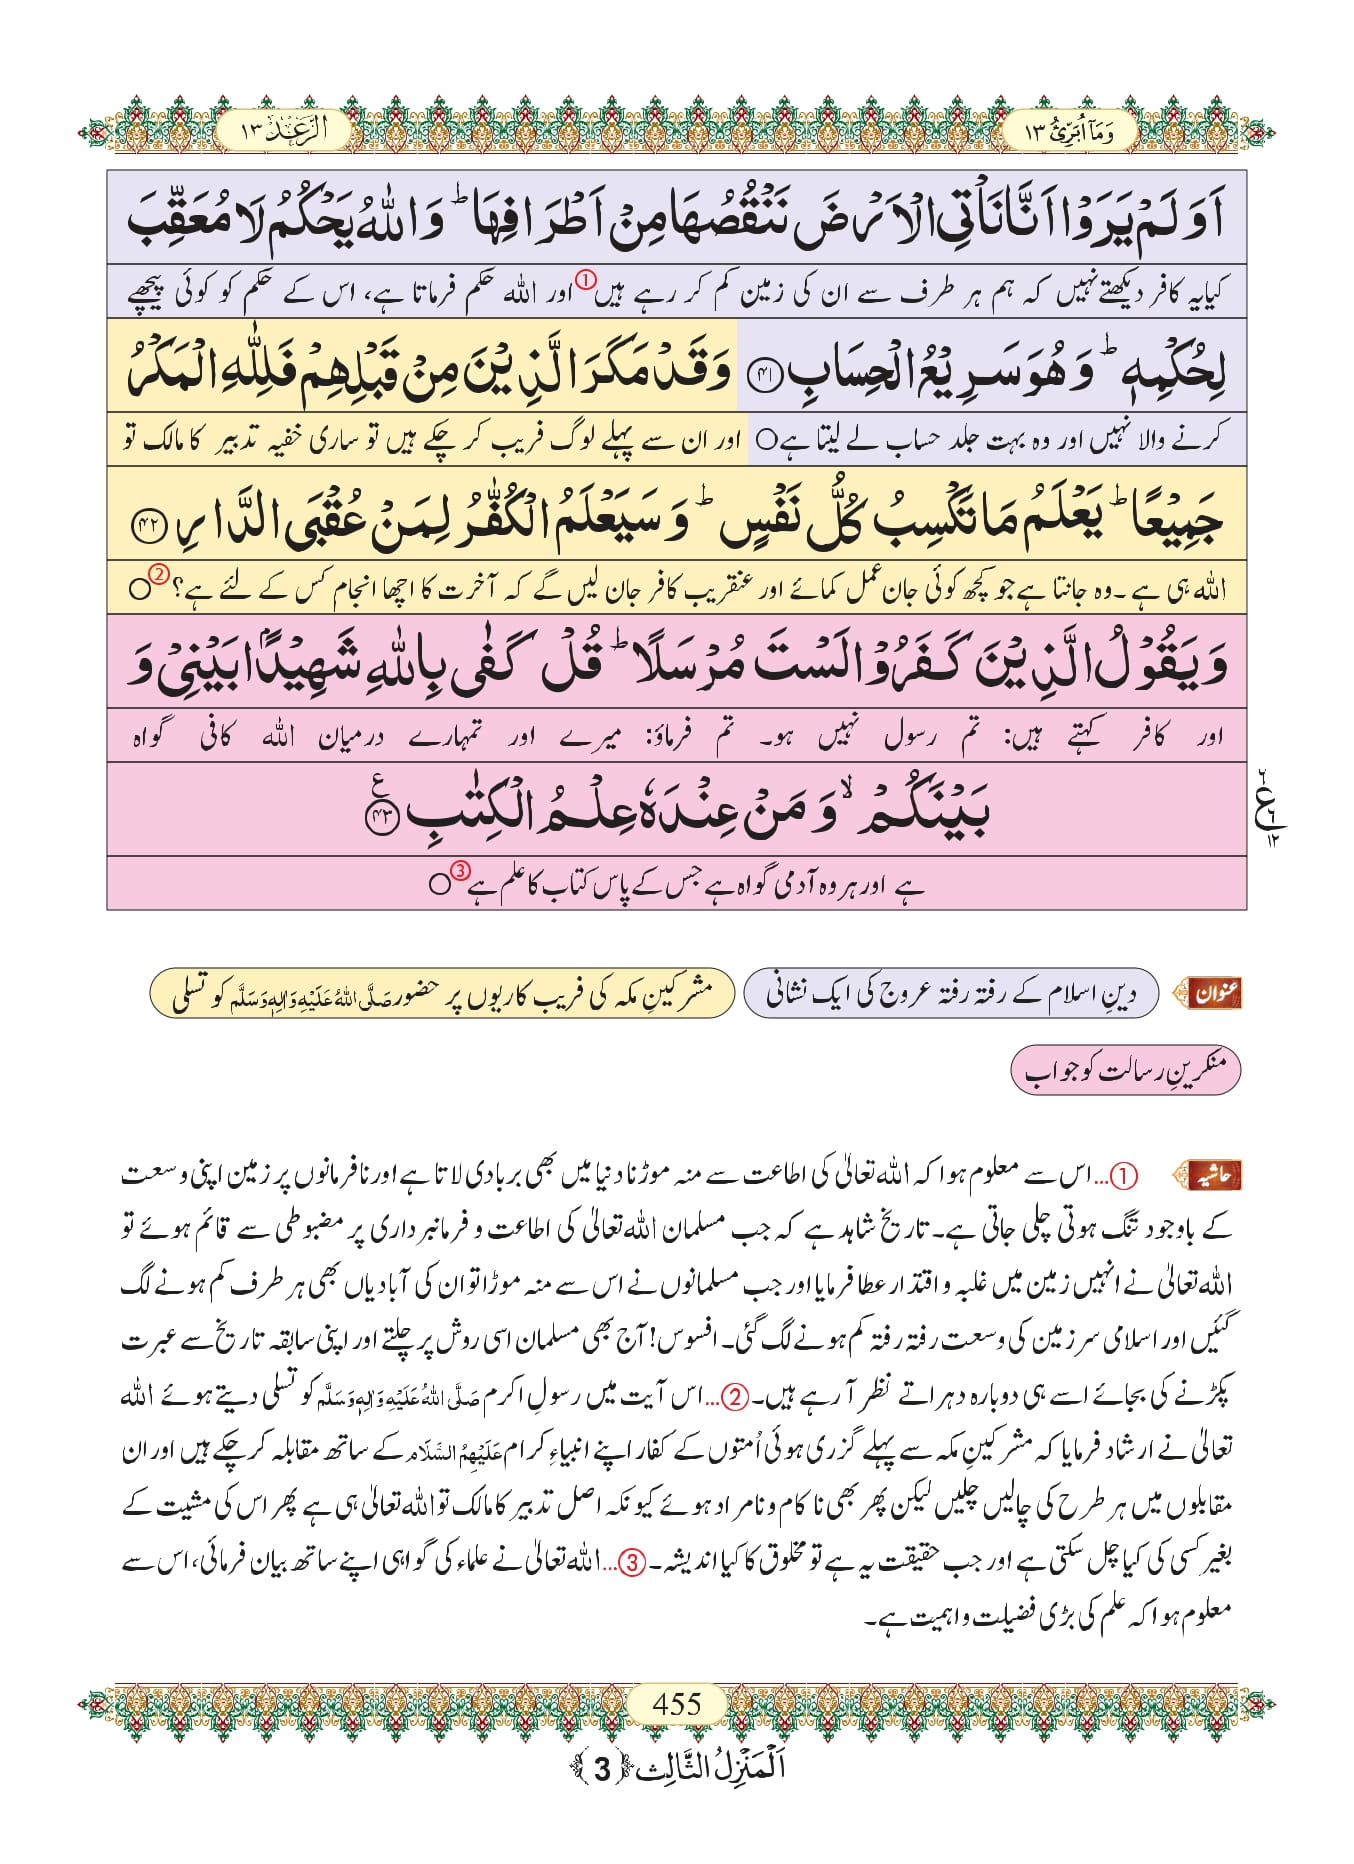 وَمَاۤ اُبَرِّئُ ١٣
الرَّعْد ١٣
اَوَلَمْ یَرَوْا اَنَّا نَاْتِی الْاَرْضَ نَنْقُصُهَا مِنْ اَطْرَافِهَاؕ وَاللّٰهُ یَحْكُمُ لَا مُعَقِّبَ
کیا یہ کافر دیکھتے نہیں کہ ہم ہر طرف سے ان کی زمین کم کر رہے ہیں① اور اللہ حکم فرماتا ہے، اس کے حکم کو کوئی پیچھے
لِحُكْمِهٖؕ وَهُوَ سَرِیْعُ الْحِسَابِ ﴿۴۱﴾ وَقَدْ مَكَرَ الَّذِیْنَ مِنْ قَبْلِهِمْ فَلِلّٰهِ الْمَكْرُ
کرنے والا نہیں اور وہ بہت جلد حساب لے لیتا ہے○ اور ان سے پہلے لوگ فریب کر چکے ہیں تو ساری خفیہ تدبیر کا مالک تو
جَمِیْعًاؕ یَعْلَمُ مَا تَكْسِبُ كُلُّ نَفْسٍؕ وَسَیَعْلَمُ الْكُفّٰرُ لِمَنْ عُقْبَى الدَّارِ ﴿۴۲﴾
اللہ ہی ہے۔ وہ جانتا ہے جو کچھ کوئی جان عمل کمائے اور عنقریب کافر جان لیں گے کہ آخرت کا اچھا انجام کس کے لئے ہے؟②○
وَیَقُوْلُ الَّذِیْنَ كَفَرُوْا لَسْتَ مُرْسَلًاؕ قُلْ كَفٰى بِاللّٰهِ شَهِیْدًۢا بَیْنِیْ وَ
اور کافر کہتے ہیں: تم رسول نہیں ہو۔ تم فرماؤ: میرے اور تمہارے درمیان اللہ کافی گواہ
بَیْنَكُمْۙ وَمَنْ عِنْدَهٗ عِلْمُ الْكِتٰبِ ﴿۴۳﴾ ع
۲ ع ۶ ۱۲
ہے اور ہر وہ آدمی گواہ ہے جس کے پاس کتاب کا علم ہے③○
عنوان دینِ اسلام کے رفتہ رفتہ عروج کی ایک نشانی مشرکینِ مکہ کی فریب کاریوں پر حضور صَلَّی اللہُ عَلَیْهِ وَاٰلِهٖ وَسَلَّم کو تسلی
منکرینِ رسالت کو جواب
حاشیہ ①...اس سے معلوم ہوا کہ اللہ تعالیٰ کی اطاعت سے منہ موڑنا دنیا میں بھی بربادی لاتا ہے اور نافرمانوں پر زمین اپنی وسعت
کے باوجود تنگ ہوتی چلی جاتی ہے۔ تاریخ شاہد ہے کہ جب مسلمان اللہ تعالیٰ کی اطاعت و فرمانبرداری پر مضبوطی سے قائم ہوئے تو
اللہ تعالیٰ نے انہیں زمین میں غلبہ و اقتدار عطا فرمایا اور جب مسلمانوں نے اس سے منہ موڑا تو ان کی آبادیاں بھی ہر طرف کم ہونے لگ
گئیں اور اسلامی سرزمین کی وسعت رفتہ رفتہ کم ہونے لگ گئی۔ افسوس! آج بھی مسلمان اسی روش پر چلتے اور اپنی سابقہ تاریخ سے عبرت
پکڑنے کی بجائے اسے ہی دوبارہ دہراتے نظر آ رہے ہیں۔ ②...اس آیت میں رسولِ اکرم صَلَّی اللہُ عَلَیْهِ وَاٰلِهٖ وَسَلَّم کو تسلی دیتے ہوئے اللہ
تعالیٰ نے ارشاد فرمایا کہ مشرکینِ مکہ سے پہلے گزری ہوئی اُمتوں کے کفار اپنے انبیاءِ کرام عَلَیْهِمُ السَّلَام کے ساتھ مقابلہ کر چکے ہیں اور ان
مقابلوں میں ہر طرح کی چالیں چلیں لیکن پھر بھی ناکام و نامراد ہوئے کیونکہ اصل تدبیر کا مالک تو اللہ تعالیٰ ہی ہے پھر اس کی مشیت کے
بغیر کسی کی کیا چل سکتی ہے اور جب حقیقت یہ ہے تو مخلوق کا کیا اندیشہ۔ ③...اللہ تعالیٰ نے علماء کی گواہی اپنے ساتھ بیان فرمائی، اس سے
معلوم ہوا کہ علم کی بڑی فضیلت و اہمیت ہے۔
455
اَلْمَنْزِلُ الثَّالِث ﴿3﴾